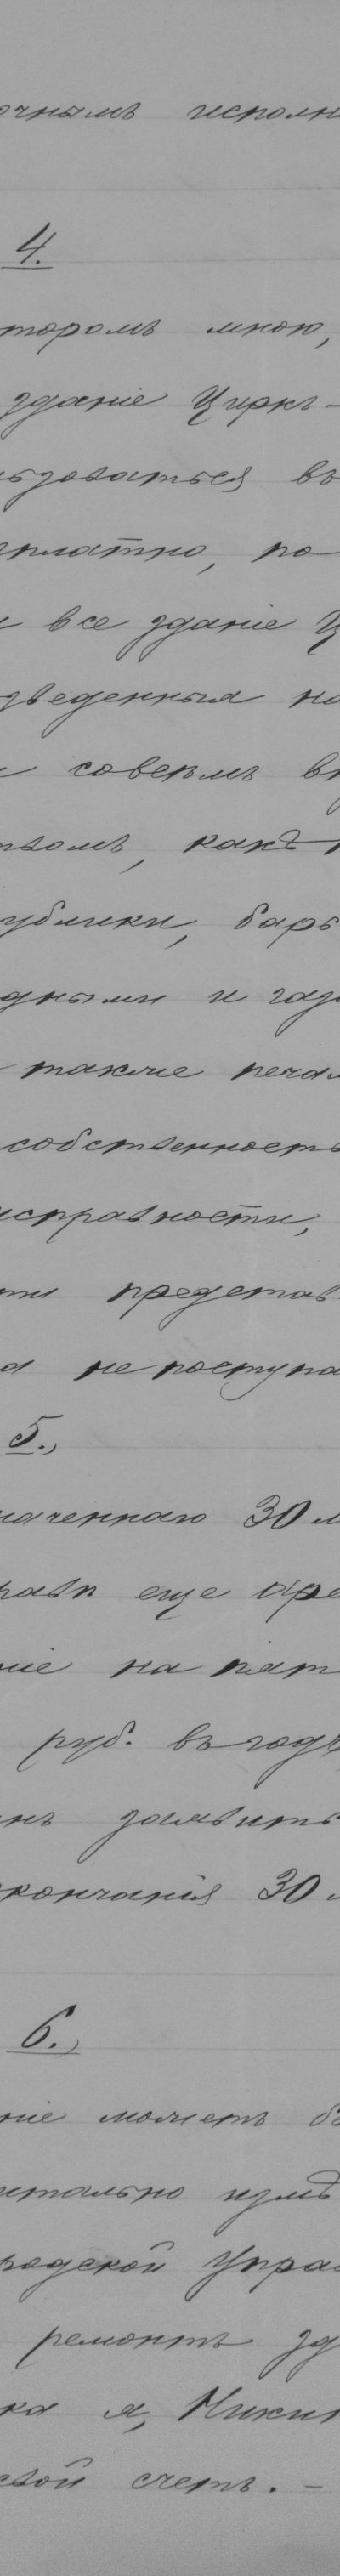 очнымъ исполн
4.
торомъ мною,
зданіе Циркъ-
ьзоваться въ
зплатно, по
и все зданіе Ц
зведенныя на
и совсѣмъ вн
твомъ, какъ-
ублики, барь
дными и газ
также печал
собственность
исправности,
ти представ
а не поступа
5.,
наченнаго 30 л
раву еще аре
ніе на пят
руб. въ годъ
нъ заявить
кончанія 30 л
6.,
ніе можетъ б
итально измѣ
родской Упра
ремонтъ зд
ка я, Никит
свой счетъ. -